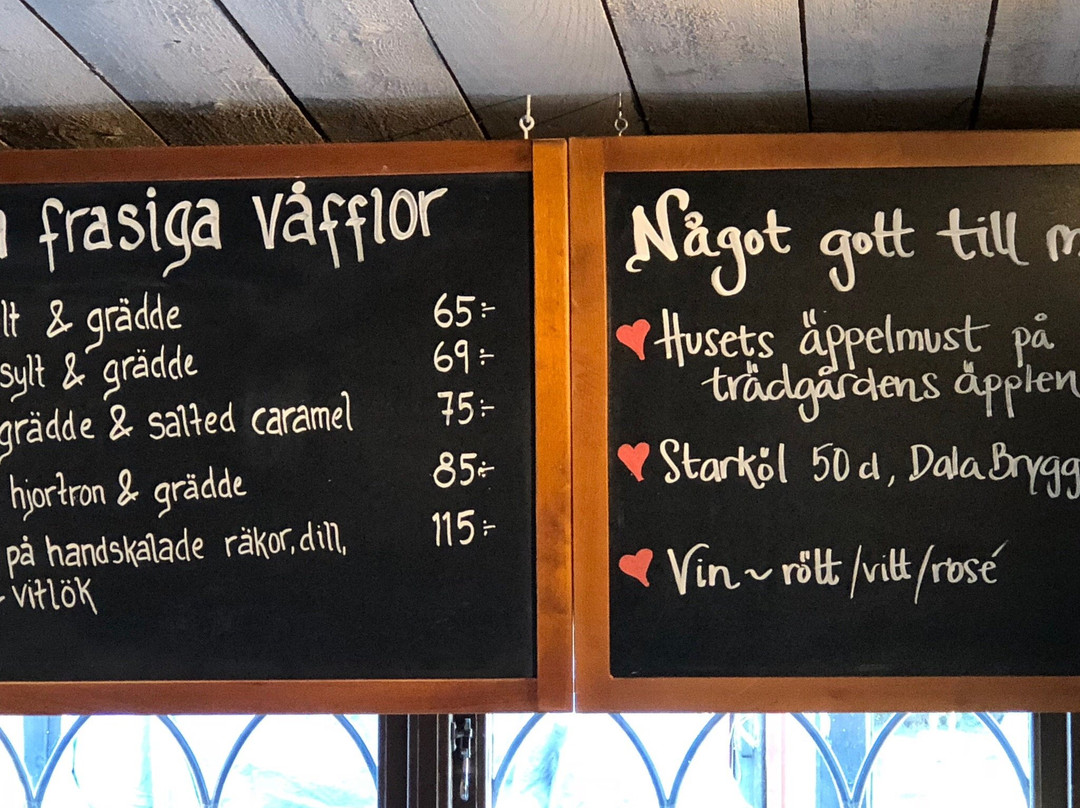 frasiga våfflor
lt & grädde 65:-
sylt & grädde 69:-
grädde & salted caramel 75:-
hjortron & grädde 85:-
på handskalade räkor, dill, 115:-
vitlök
Något gott till m
Husets äppelmust på
trädgårdens äpplen
Starköl 50 cl, Dala Brygg
Vin ~ rött /vitt/rosé